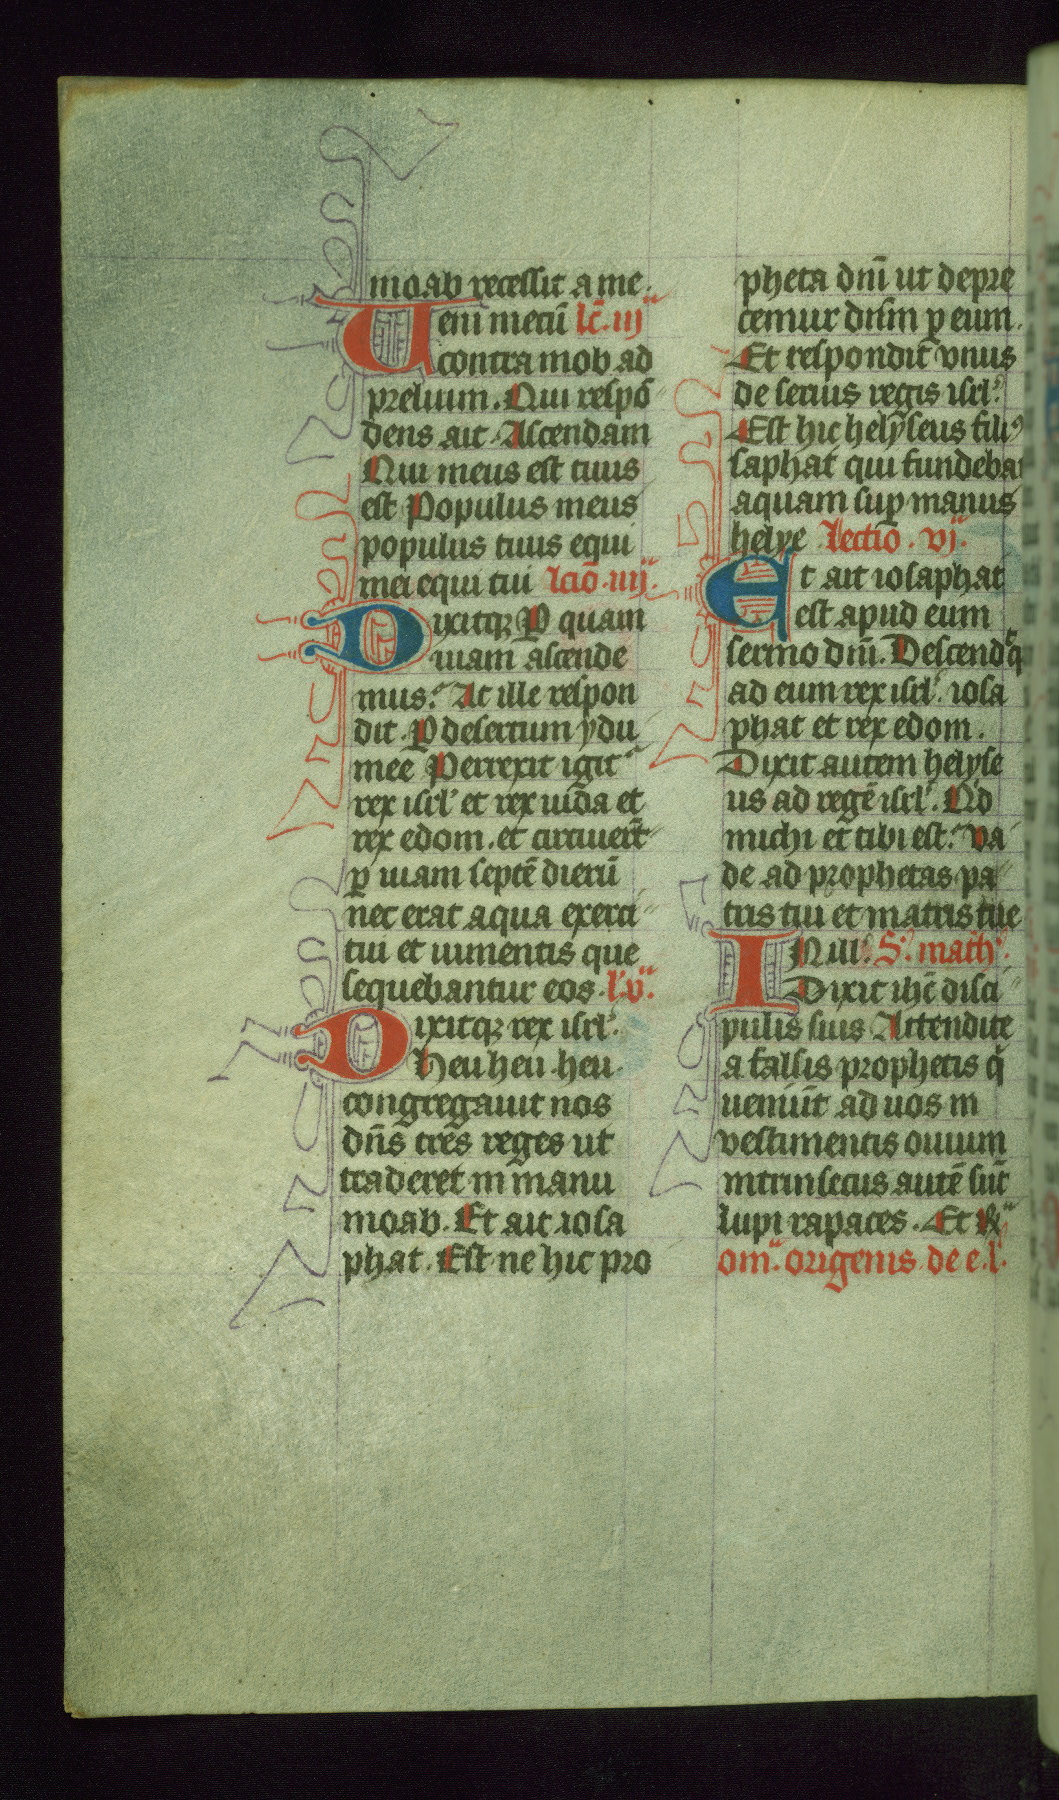 moab recessit a me.
Ueni mecū lc̄. iij
contra mob ad
prelium. Qui respō
dens ait. Ascendam
Qui meus est tuus
est Populus meus
populus tuus equi
mei equi tui lcīo. iiij.
Dixitqꝫ P quam
uiam ascende
mus. At ille respon
dit. P desertum ydu
mee Perrexit igit
rex isrl' et rex iuda et
rex edom. et circuuer̄t
ꝑ uiam septē dierū
nec erat aqua exerci
tui et iumentis que
sequebantur eos. l'. v.
Dixitqꝫ rex isrl'.
heu heu heu.
congregauit nos
dn̄s tres reges ut
traderet in manu
moab. Et ait iosa
phat. Est ne hic pro
pheta dnī ut depre
cemur dn̄m ꝑ eum.
Et respondit vnus
de seruis regis isrl'.
Est hic helyseus filiꝰ
saphat qui fundebat
aquam suꝑ manus
helye Lectio. vj.
Et ait iosaphat
est apud eum
sermo dnī. Descendꝰq̄
ad eum rex isrl'. iosa
phat et rex edom.
Dixit autem helyse
us ad regē isrl'. Qd
michi et tibi est. Va
de ad prophetas pa
tris tui et matris tue
IN ill'. S. math'.
Dixit ihc̄ disci
pulis suis Attendite
a falsis prophetis q̄
ueniūt ad uos in
vestimentis ouium
intrinsecus autē sūt
lupi rapaces. Et R
om. origenis de e. l'.